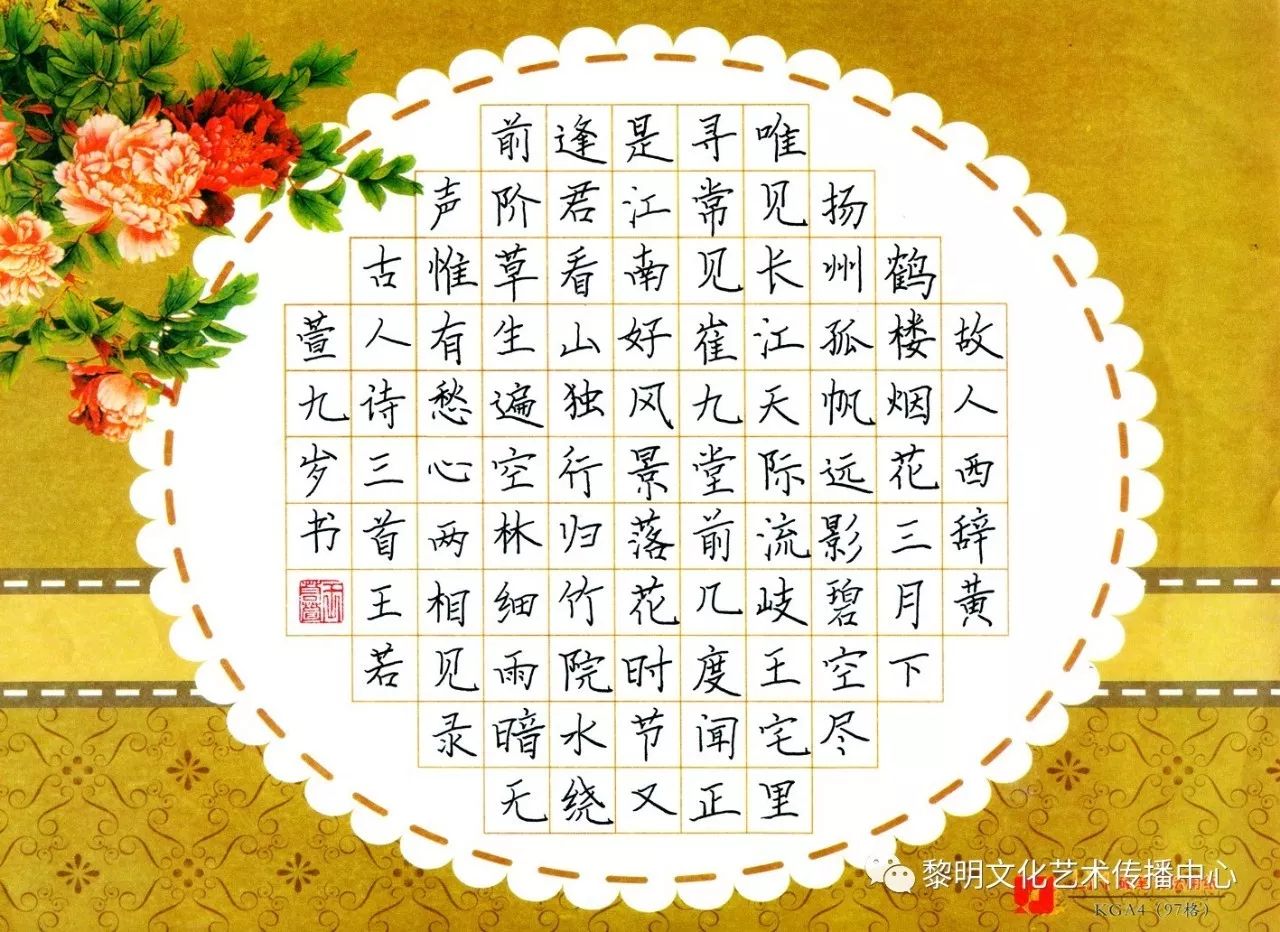 故人西辞黄
鹤楼烟花三月下
扬州孤帆远影碧空尽
唯见长江天际流岐王宅里
寻常见崔九堂前几度闻正
是江南好风景落花时节又
逢君看山独行归竹院水绕
前阶草生遍空林细雨暗无
声惟有愁心两相见录
古人诗三首王若
萱九岁书
黎明文化艺术传播中心
KGA4（97格）